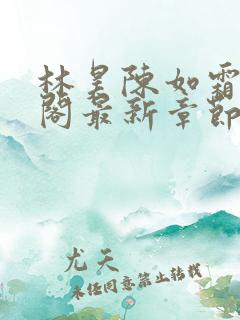 林昊陳如霜
閣最新章節
尤天
未任同意禁止转载